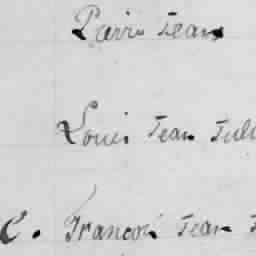 Pierre Jean
Louis Jean Jule
C. Francois Jean